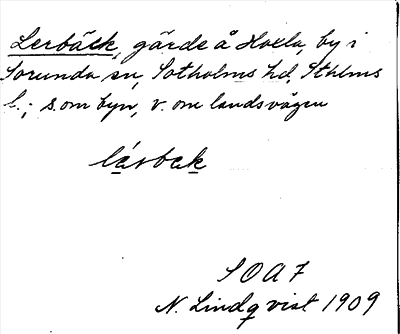 Lerbäck, gärde å Hoxla, by i
Sorunda sn, Sotholms hd, Sthlms
l.; s. om byn, v. om landsvägen
lä́rbak
SOAF
N. Lindqvist 1909